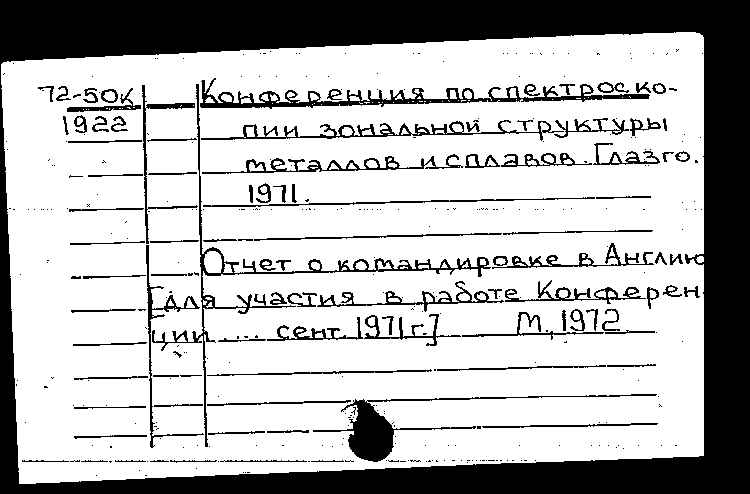 72-50к Конференция по спектроско-
1922 пии зональной структуры
металлов и сплавов. Глазго.
1971.
Отчет о командировке в Англию
[для участия в работе Конферен-
ции ... сент. 1971 г.] М., 1972